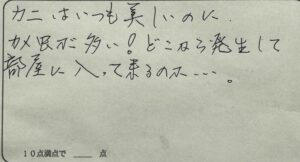 カニはいつも美しいのに、
カメ虫が多い!どこから発生して
部屋に入って来るのか…。
10点満点で ____ 点